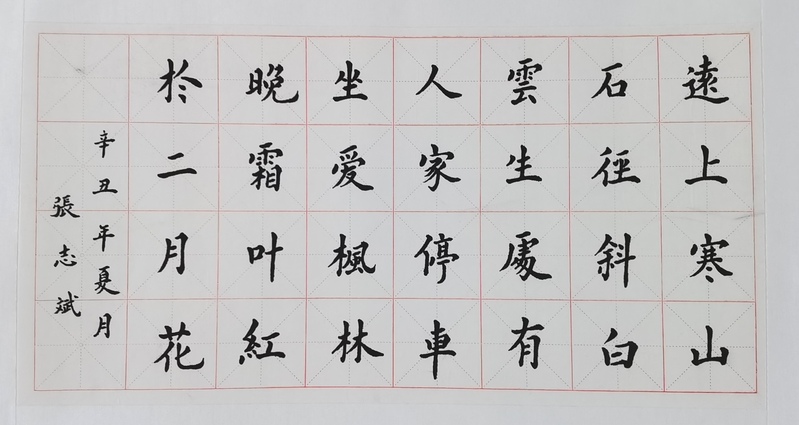 遠上寒山
石徑斜白
雲生處有
人家停車
坐爱楓林
晚霜叶紅
於二月花
辛丑年夏月
張志斌